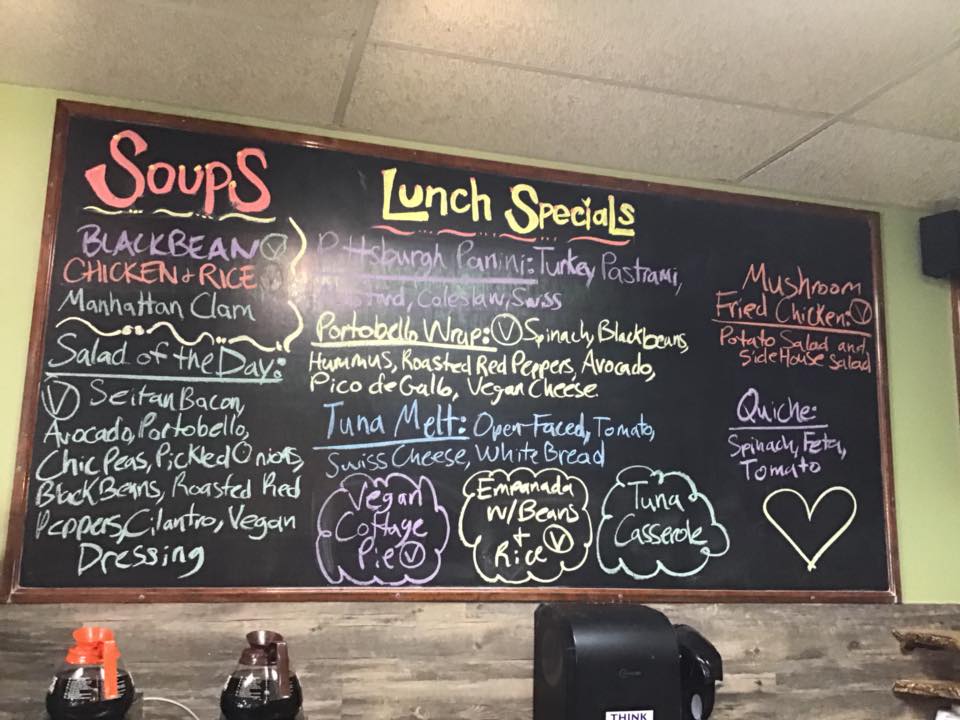 Soups
BLACKBEAN V
CHICKEN + RICE
Manhattan Clam
Salad of the Day:
V Seitan Bacon,
Avocado, Portobello,
Chic Peas, Pickled Onions,
Black Beans, Roasted Red
Peppers, Cilantro, Vegan
Dressing
Lunch Specials
Pittsburgh Panini: Turkey Pastrami,
Mustard, Coleslaw, Swiss
Portobello Wrap: V Spinach, Blackbeans,
Hummus, Roasted Red Peppers, Avocado,
Pico de Gallo, Vegan Cheese.
Tuna Melt: Open Faced, Tomato,
Swiss Cheese, White Bread
Vegan
Cottage
Pie V
Empanada
w/Beans
+
Rice V
Tuna
Casserole
Mushroom
Fried Chicken: V
Potato Salad and
Side House Salad
Quiche:
Spinach, Feta,
Tomato
THINK